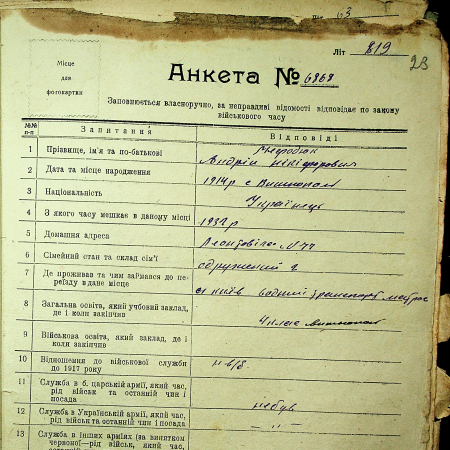 63
Літ 819
23
Місце
для
фотокартки
Анкета № 6868
Заповнюється власноручно, за неправдиві відомості відповідає по закону
військового часу
№№ п-п Запитання Відповіді
1 Прізвище, ім'я та по-батькові
Андрій Нікіфорович
2 Дата та місце народження 1914 р с
3 Національність Українець
4 З якого часу мешкає в даному місці 1932 р
5 Домашня адреса
6 Сімейний стан та склад сім'ї одружений
7 Де проживав та чим займався до пе-
реїзду в дане місце м Київ водний транспорт матрос
8 Загальна освіта, який учбовий заклад,
де і коли закінчив 4 класи
9 Військова освіта, який заклад, де і
коли закінчив
10 Відношення до військової служби
до 1917 року
11 Служба в б. царській армії, який час,
рід військ та останній чин і
посада не був
12 Служба в Українській армії, який час,
рід військ та останній чин і посада - " -
13 Служба в інших арміях (за винятком
червоної—рід військ, який час,